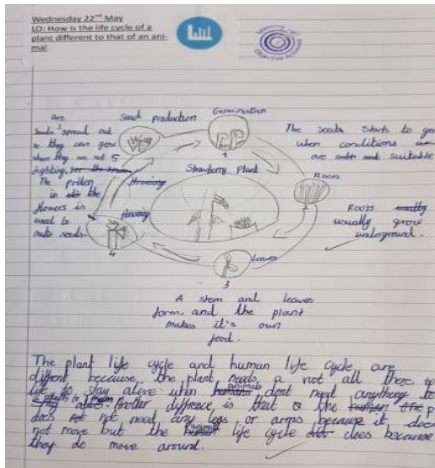 Wednesday 22nd May
LO: How is the life cycle of a
plant different to that of an ani-
mal
Seed production
Germination
are
seeds spread out
so they can grow
where they are not
fighting
The seeds starts to
when conditions
are suitable
Strawberry Plant
Roots
The pollen
in the
flowers is
used to
make seeds.
Roots
usually grow
underground.
1
2
3
4
5
Leaves
A stem and leaves
form, and the plant
makes it's own
food.
The plant life cycle and human life cycle are
because the plant needs a not all there
to stay alive when animals dont need anything
Another diffrence is that the
does not need any legs or arms because it
not move but the life cycle does because
they do move around.